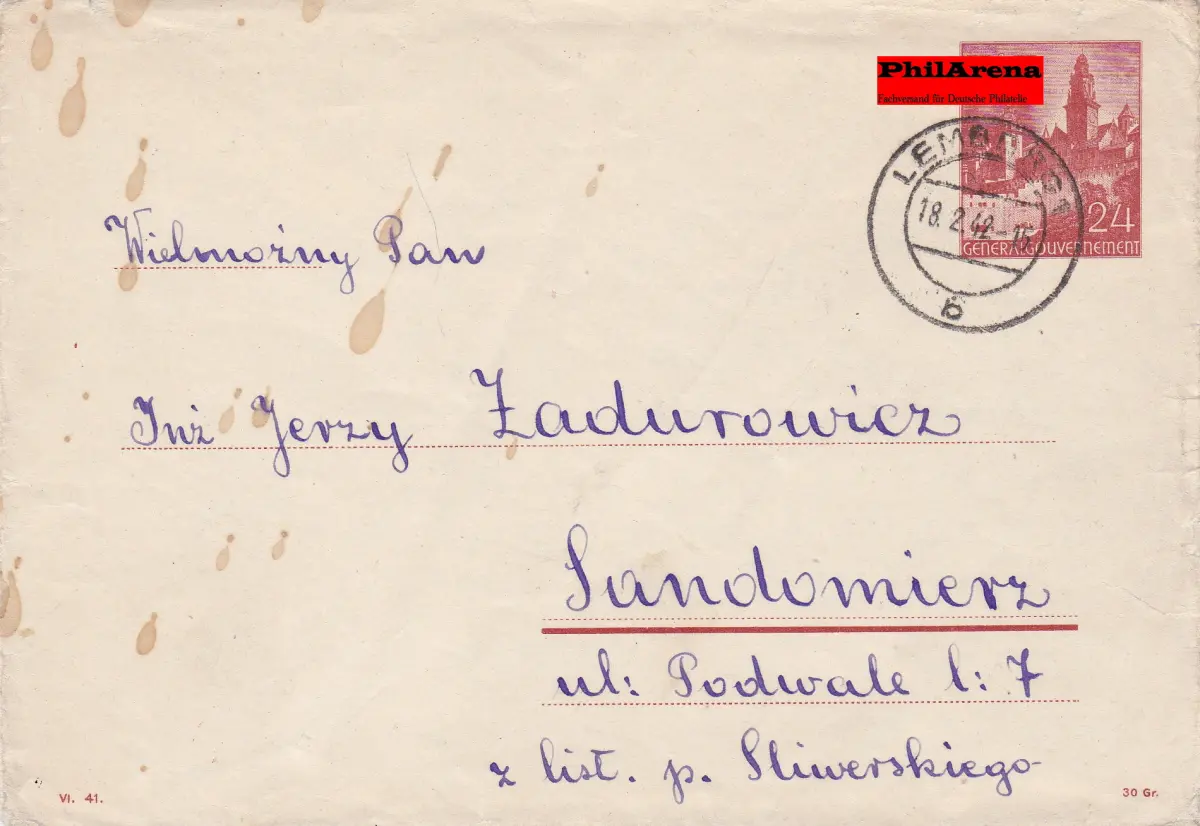 PhilArena
Fachversand für Deutsche Philatelie
LEMBERG 1
18.2.42-15
b
24
GENERALGOUVERNEMENT
Wielmożny Pan
Inż Jerzy Żadurowicz
Sandomierz
ul: Podwale l: 7
z list. p. Sliwerskiego
VI. 41.
30 Gr.